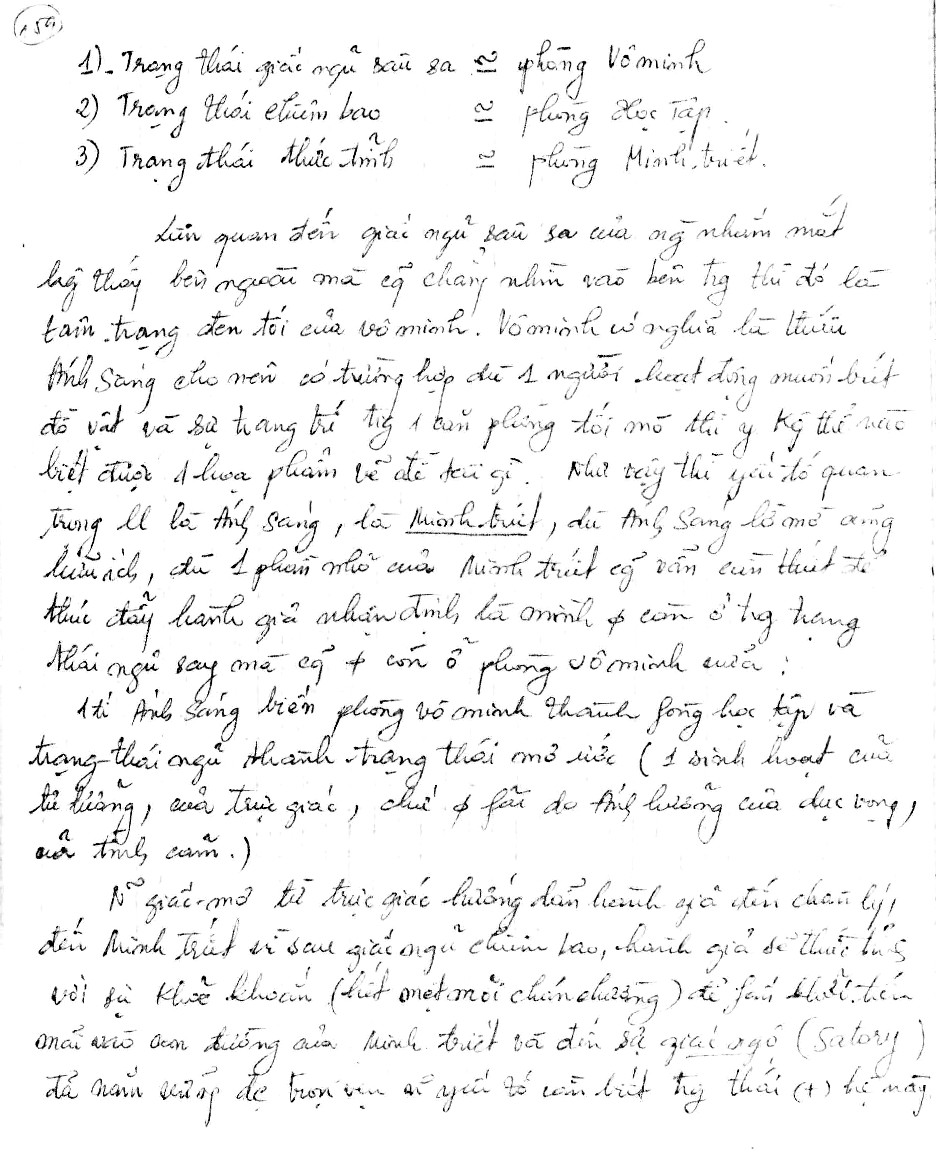 154
1)- Trạng thái giấc ngủ sâu sa ≃ phòng Vô minh
2) Trạng thái chiêm bao ≃ phòng Học Tập.
3) Trạng thái thức tỉnh ≃ phòng Minh triết.
Liên quan đến giấc ngủ sâu sa của ng nhắm mắt
thấy bên ngoài mà cg chẳng nhìn vào bên tg thì đó là
tâm trạng đen tối của vô minh. Vô minh có nghĩa là thiếu
Ánh Sáng cho nên có trường hợp dù 1 người hoạt động muốn biết
đồ vật và sự trang trí tg 1 căn phòng tối mò thì y kg thể nào
biết được 1 họa phẩm vẽ đề tài gì. Như vậy thì yếu tố quan
trọng là Ánh Sáng, là Minh triết, dù Ánh Sáng lờ mờ cũng
hữu ích, dù 1 phần nhỏ của Minh triết cg vẫn cần thiết để
thúc đẩy hành giả nhận định là mình φ còn ở tg trạng
thái ngủ say mà cg φ còn ở phòng vô minh nữa:
1 tí Ánh Sáng biến phòng vô minh thành fòng học tập và
trạng-thái ngủ thành trạng thái mơ ước (1 sinh hoạt của
tư tưởng, của trực giác, chứ φ fải do Ảnh hưởng của dục vọng,
của tình cảm.)
Ñ giấc-mơ từ trực giác hướng dẫn hành giả đến chân lý,
đến Minh Triết vì sau giấc ngủ chiêm bao, hành giả sẽ thức tỉnh
với sự khoẻ khoắn (hết mệt mỏi chán chường) để
mãi vào con đường của Minh triết và đến sự giác ngộ (Satory)
đã nắm vững trọn vẹn yếu tố cần biết tg thái (+) hệ này